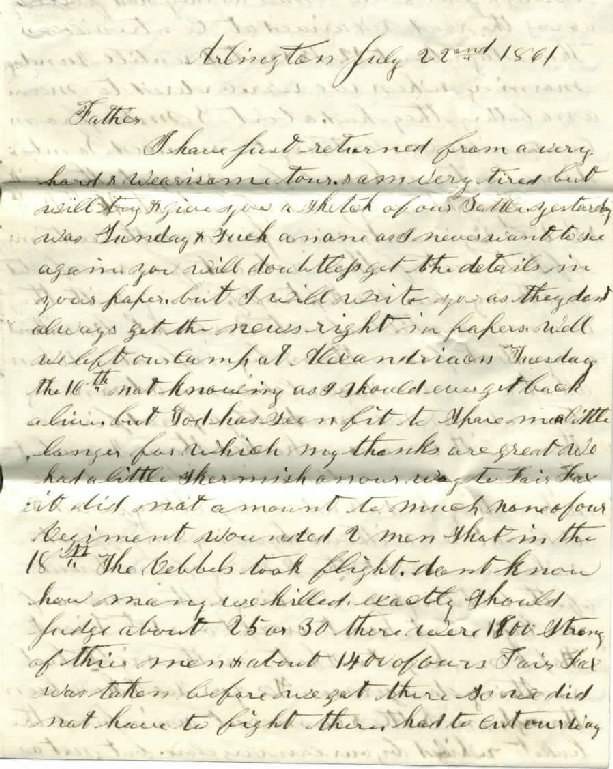 Arlington July 22nd 1861
Father
I have just returned from a very
hard & wearisome tour & am very tired but
will try & give you a sketch of our Battle yesterday
was Sunday & such a none as I never want to see
again you will doubtless get the details in
your paper but I will write you as they dont
always get the news right in papers well
we left our camp at Alexandria on Tuesday
the 16th not knowing as I should ever get back
alive but God has seen fit to spare me a little
longer for which my thanks are great We
had a little skermish on our way to Fair Fax
it did not amount to much none of our
Regiment wounded 2 men shot in the
18th The Rebbels took flight. dont know
how many we killed exactly should
judge about 25 or 30 there were 1800 strong
of their men & about 1400 of ours Fair Fax
was taken before we got there so we did
not have to fight there had to cut our way